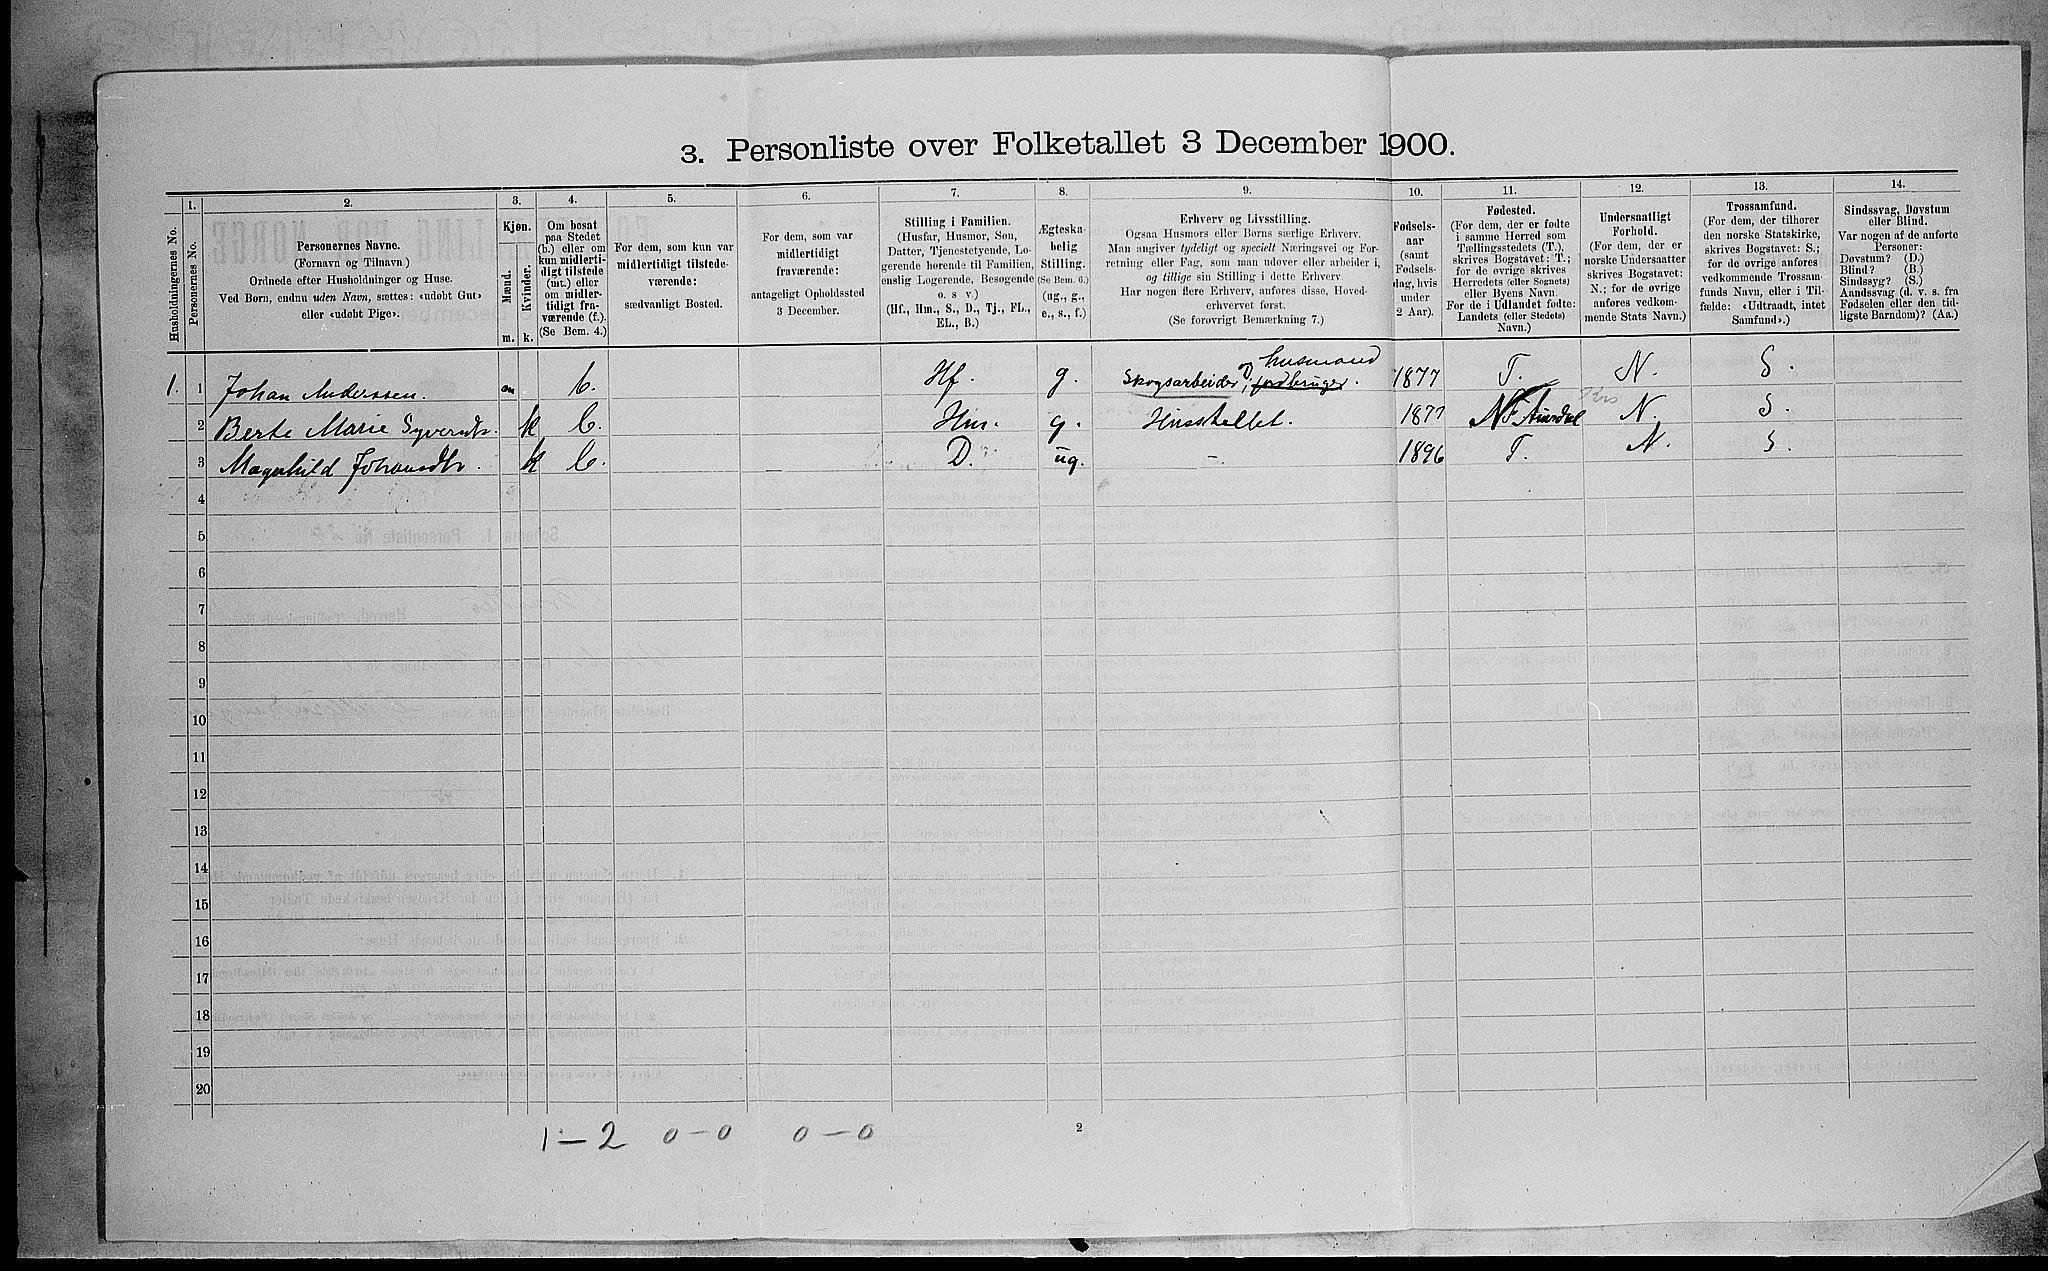 3. Personliste over Folketallet 3 December 1900.
1. 2. 3. 4. 5. 6. 7. 8. 9. 10. 11. 12. 13. 14.
Husholdningernes No.
Personernes No.
Personernes Navne.
(Fornavn og Tilnavn)
Ordnede efter Husholdninger og Huse.
Ved Børn, endnu uden Navn, sættes: «udøbt Gut»
eller «udøbt Pige».
Kjøn.
Mænd.
Kvinder.
m. k.
Om bosat
paa Stedet
(b.) eller om
kun midlerti-
digt tilstede
(mt.) eller
om midler-
tidigt fra-
værende (f.).
(Se Bem. 4.)
For dem, som kun var
midlertidigt tilstede-
værende:
sædvanligt Bosted.
For dem, som var
midlertidigt
fraværende:
antageligt Opholdssted
3 December.
Stilling i Familien.
(Husfar, Husmor, Søn,
Datter, Tjenestetyende, Lo-
gerende hørende til Familien,
enslig Logerende, Besøgende
o. s v.)
(Hf., Hm., S., D., Tj., FL.,
EL., B.)
Ægteska-
belig
Stilling.
(Se Bem. 6.)
(ug., g.,
e., s., f.)
Erhverv og Livsstilling.
Ogsaa Husmors eller Børns særlige Erhverv.
Man angiver tydeligt og specielt Næringsvei og For-
retning eller Fag, som man udøver eller arbeider i,
og tillige sin Stilling i dette Erhverv.
Har nogen flere Erhverv, anføres disse, Hoved-
erhvervet først.
(Se forøvrigt Bemærkning 7.)
Fødsels-
aar
(samt
Fødsels-
dag, hvis
under
2 Aar).
Fødested.
(For dem, der er fødte
i samme Herred som
Tællingsstedets (T.),
skrives Bogstavet: T.;
for de øvrige skrives
Herredets (eller Sognets)
eller Byens Navn.
For de i Udlandet fødte:
Landets (eller Stedets)
Navn.)
Undersaatligt
Forhold.
(For dem, der er
norske Undersaatter
skrives Bogstavet:
N.; for de øvrige
anføres vedkom-
mende Stats Navn.)
Trossamfund.
(For dem, der tilhører
den norske Statskirke,
skrives Bogstavet: S.;
for de øvrige anføres
vedkommende Trossam-
funds Navn, eller i Til-
fælde: «Udtraadt, intet
Samfund».)
Sindssvag, Døvstum
eller Blind.
Var nogen af de anførte
Personer:
Døvstum? (D.)
Blind? (B.)
Sindssyg? (S.)
Aandssvag (d. v. s. fra
Fødselen eller den tid-
ligste Barndom)? (Aa.)
husmand
1. 1 Johan Anderssen. m b. Hf. g. Skogsarbeider, jordbruger. 1877 T. N. S.
2 Berte Marie Syverdtr. k b. Hm. g. Husstellet. 1877 N. Aurdal N. S.
3 Magnhild Johansdtr. k b. D. ug. - 1896 T. N. S.
4
5
6
7
8
9
10
11
12
13
14
15
16
17
18
19
20
1 - 2 0 - 0 0 - 0
2